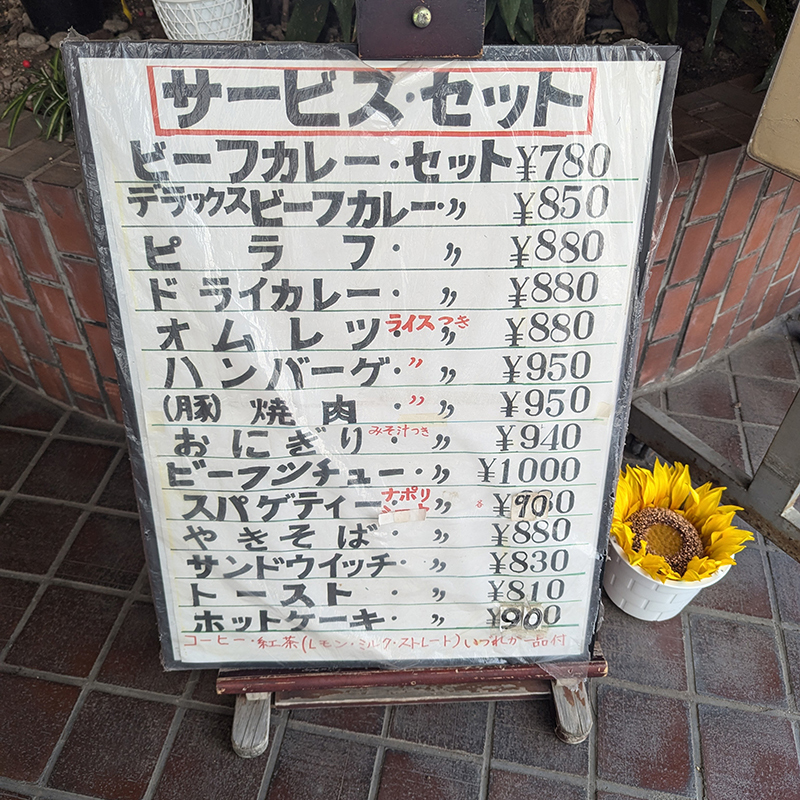 サービス・セット
ビーフカレー・セット ¥780
デラックスビーフカレー・〃 ¥850
ピラフ・〃 ¥880
ドライカレー・〃 ¥880
オムレツ・ライスつき 〃 ¥880
ハンバーグ・〃 〃 ¥950
(豚)焼肉・〃 〃 ¥950
おにぎり みそ汁つき 〃 ¥940
ビーフシチュー・〃 ¥1000
スパゲティー・ナポリ 〃 ¥900
やきそば・〃 ¥880
サンドウイッチ・〃 ¥830
トースト・〃 ¥810
ホットケーキ・〃 ¥900
コーヒー・紅茶(レモン・ミルク・ストレート)いづれか一品付